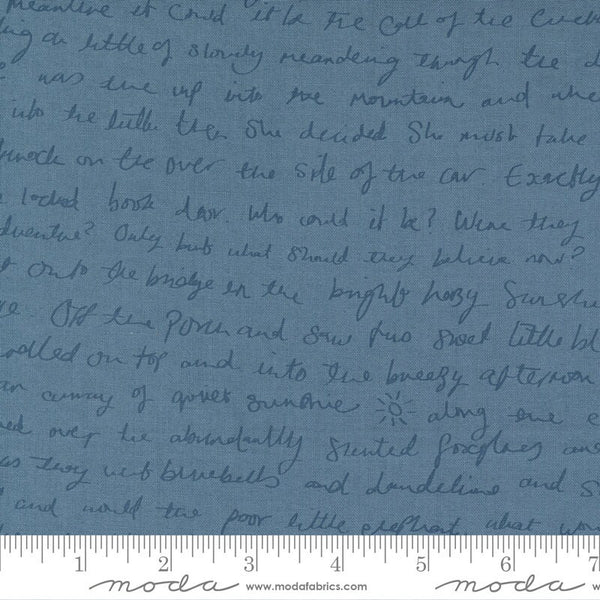 meantime it could it be the call of the
an little of slowly meandering through the
was the up into the mountain and whe
into the little then she decided She must take
knock on the over the side of the car. Exactly
locked book door. Who could it be? Were they
dventure? Only but what should they believe now?
onto the bridge in the bright hazy Sunshi
Off the porch and saw two sweet little bl
on top and into the breezy afternoon
an away of quiet sunshine along the
over the abundantly scented foxgloves and
as they were bluebells and dandelions and
and would the poor little elephant what
1 2 3 4 5 6 7
moda www.modafabrics.com moda www.modafabrics.com